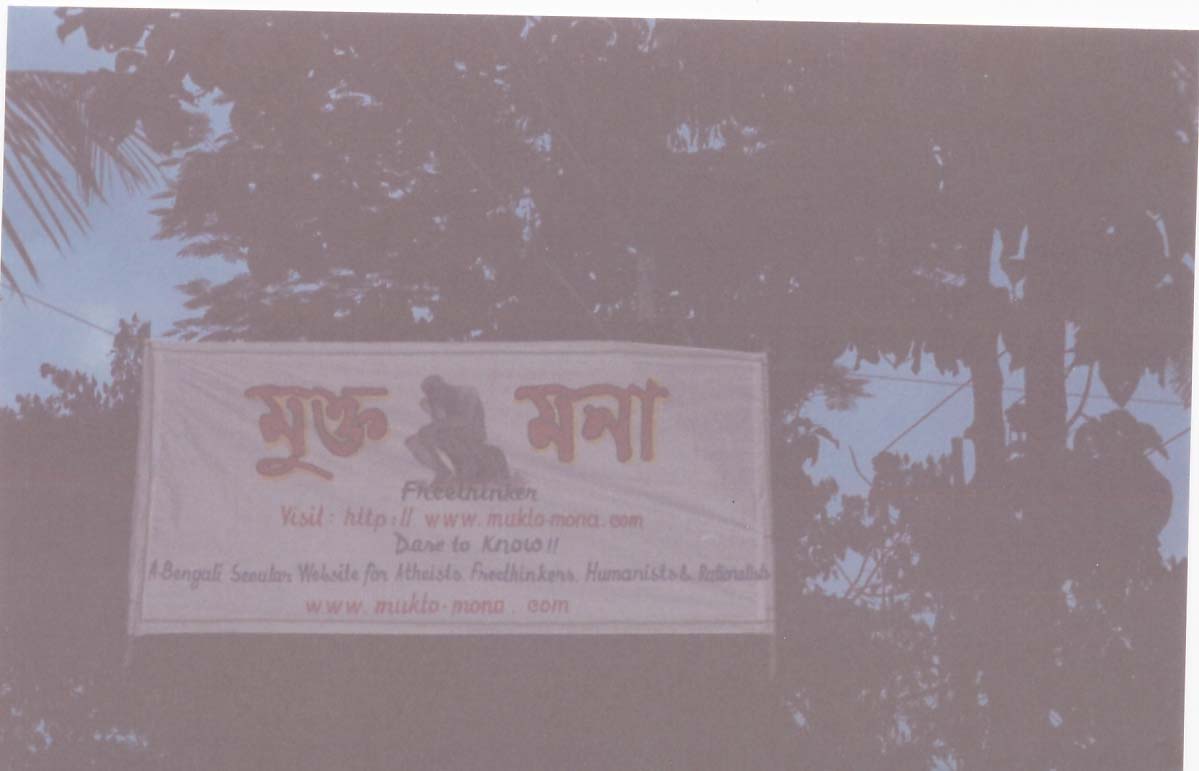 মুক্ত মনা
Freethinker
Visit : http : // www. mukto-mona. com
Dare to Know !!
A Bengali Secular Website for Atheists, Freethinkers, Humanists & Rationalists
www. mukto-mona . com